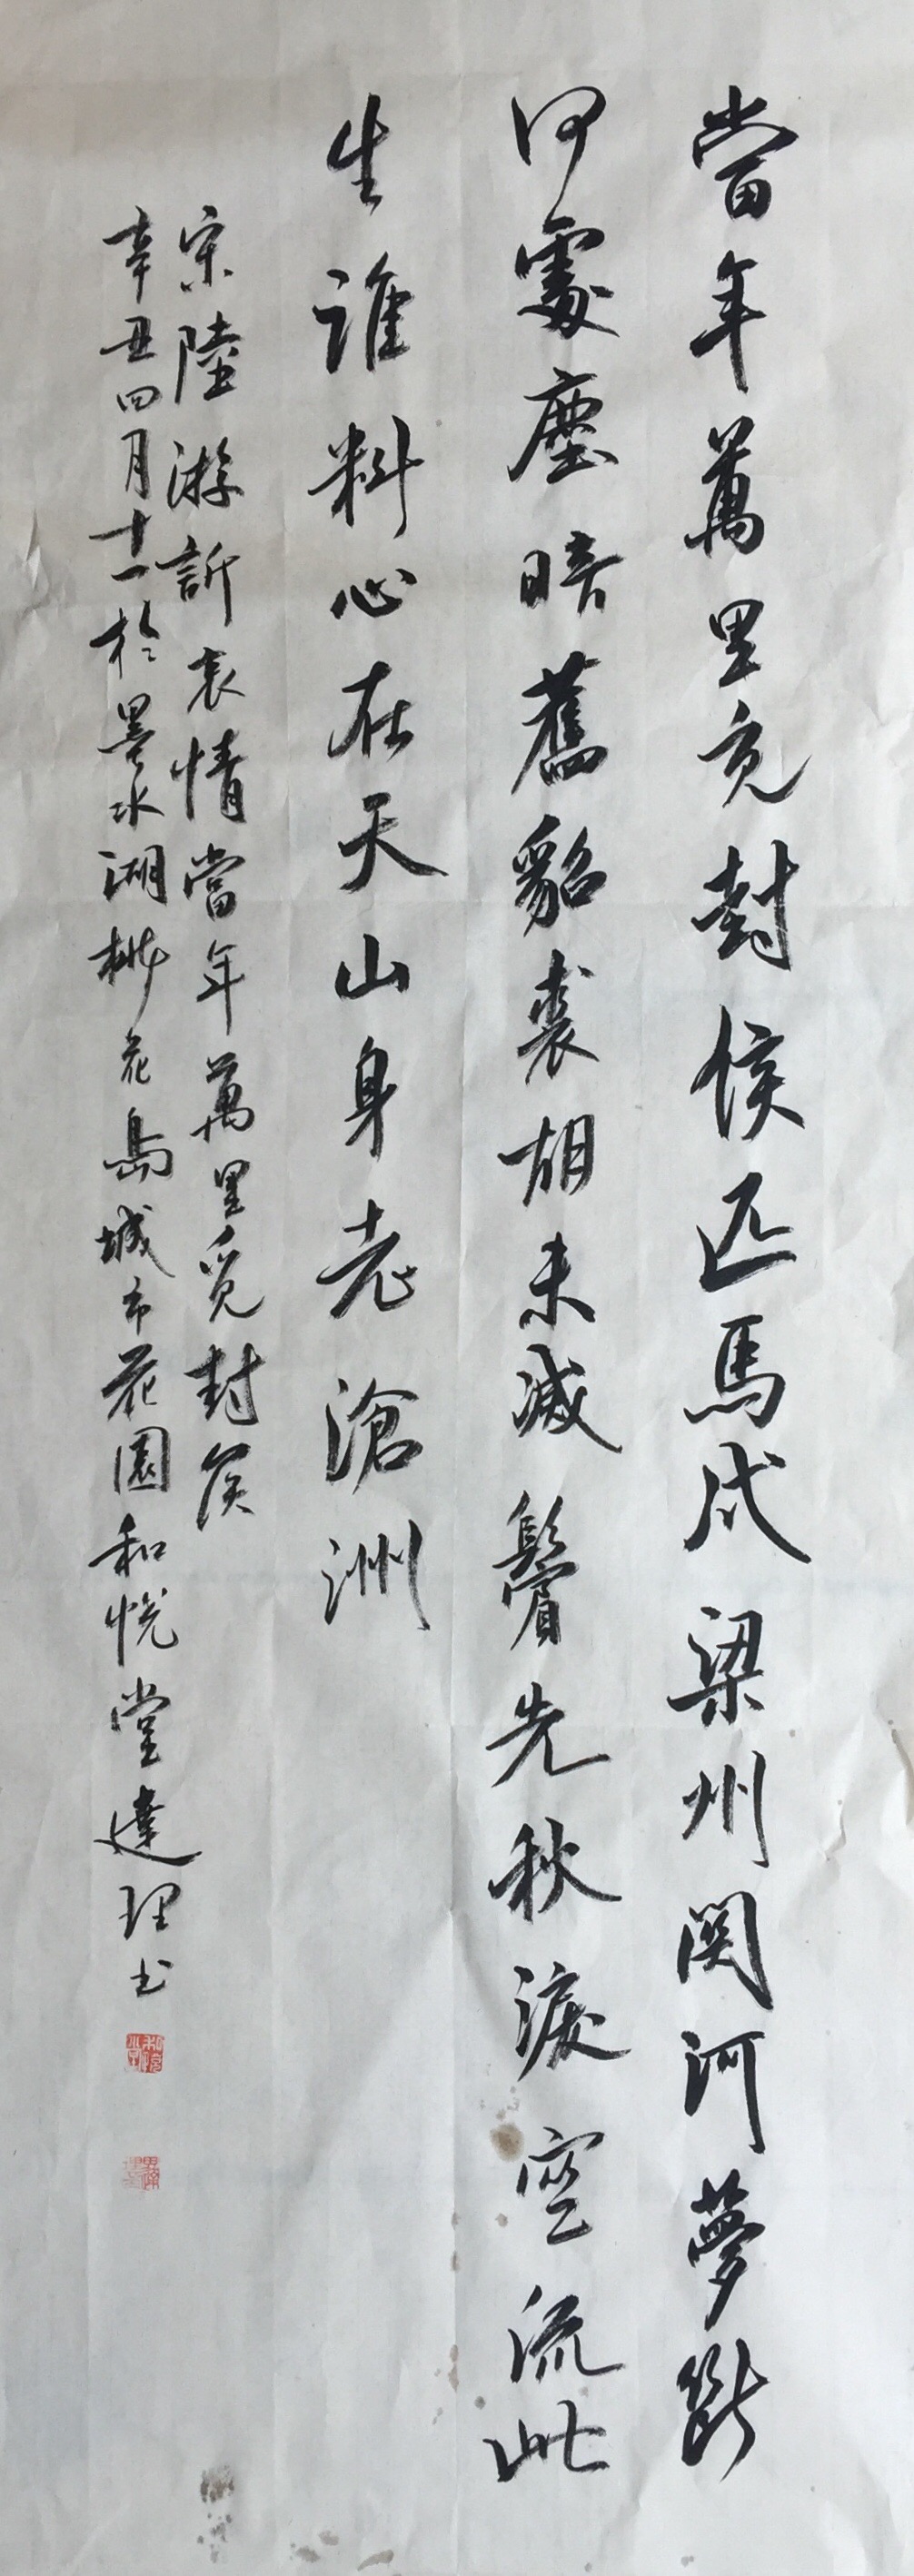 當年萬里覓封侯匹馬戍梁州関河夢斷
何處塵暗舊貂裘胡未滅鬢先秋淚空流此
生誰料心在天山身老滄洲
宋陸游訴衷情當年萬里覓封侯
辛丑四月十一於墨水湖桃花島城市花園和悅堂達理书